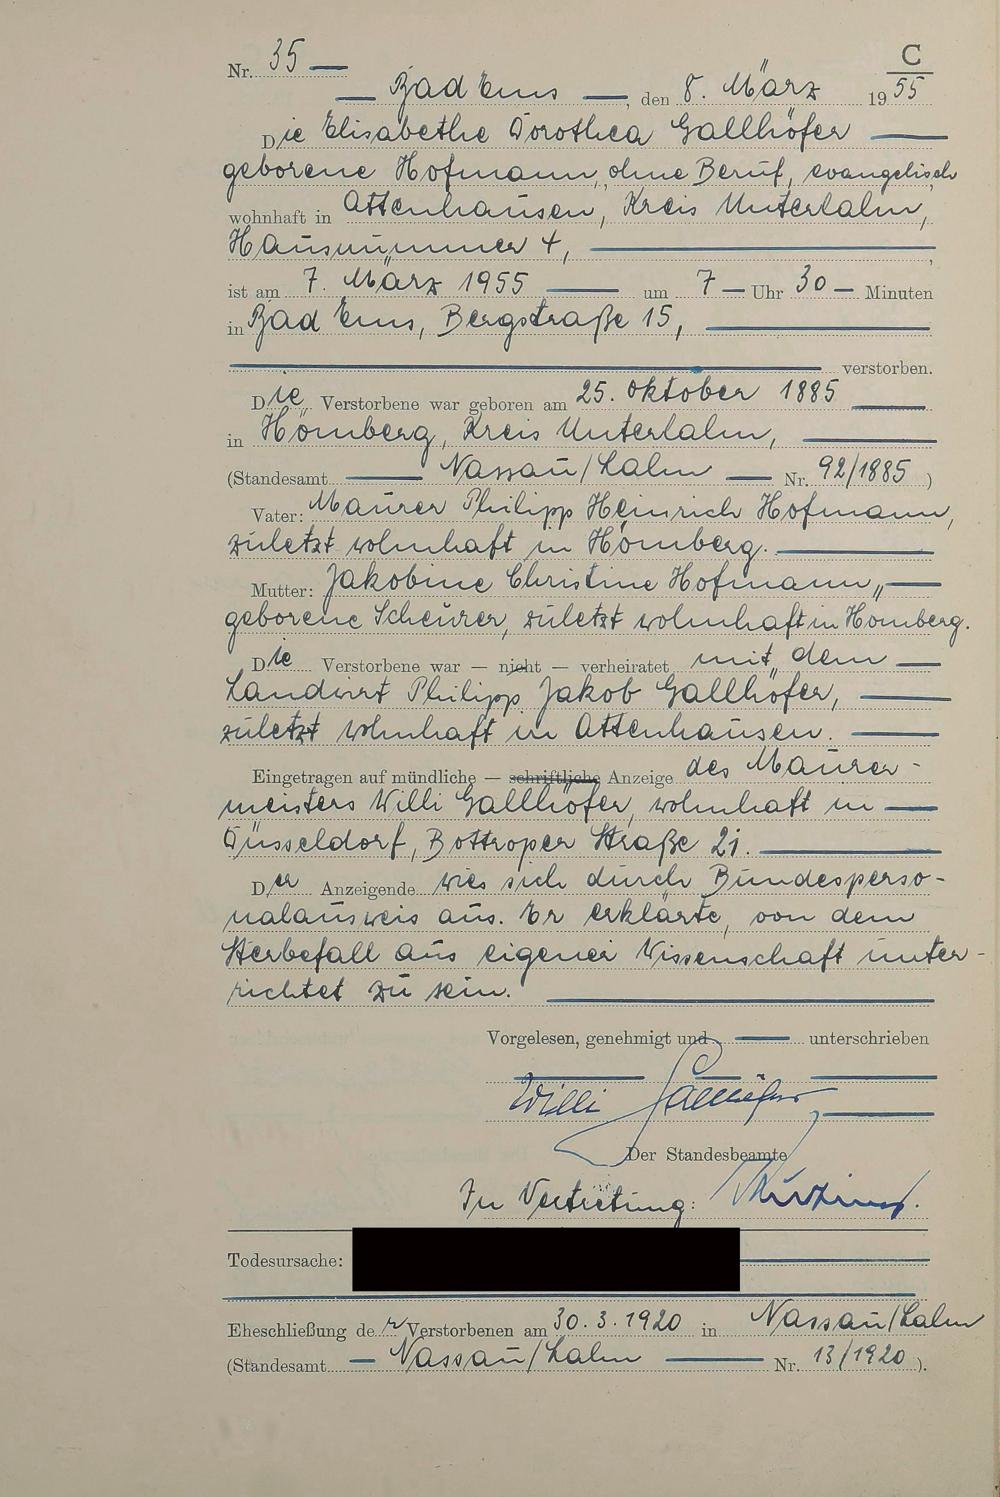 Nr. 35 C
Bad Ems, den 8. März 1955
Die Elisabethe Dorothea Gallhöfer
geborene Hofmann, ohne Beruf, evangelisch
wohnhaft in Attenhausen, Kreis Unterlahn,
Hausnummer 4,
ist am 7. März 1955 um 7 Uhr 30 Minuten
in Bad Ems, Bergstraße 15,
verstorben.
Die Verstorbene war geboren am 25. Oktober 1885
in Hömberg, Kreis Unterlahn,
(Standesamt Nassau/Lahn Nr. 92/1885)
Vater: Maurer Philipp Heinrich Hofmann,
zuletzt wohnhaft in Hömberg.
Mutter: Jakobine Christine Hofmann,
geborene Scheurer, zuletzt wohnhaft in Hömberg.
Die Verstorbene war — nicht — verheiratet mit dem
Landwirt Philipp Jakob Gallhöfer,
zuletzt wohnhaft in Attenhausen.
Eingetragen auf mündliche — schriftliche Anzeige des Maurer-
meisters Willi Gallhöfer, wohnhaft in
Düsseldorf, Bottroper Straße 21.
Der Anzeigende wies sich durch Bundesperso-
nalausweis aus. Er erklärte, von dem
Sterbefall aus eigener Wissenschaft unter-
richtet zu sein.
Vorgelesen, genehmigt und unterschrieben
Willi Gallhöfer
Der Standesbeamte
In Vertretung:
Todesursache:
Eheschließung der Verstorbenen am 30. 3. 1920 in Nassau/Lahn
(Standesamt Nassau/Lahn Nr. 13/1920).